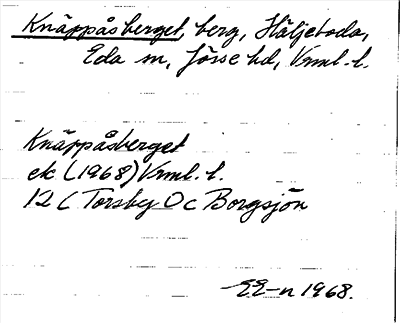 Knäppåsberget, berg, Häljeboda,
Eda sn, Jösse hd, Vrml. l.
Knäppåsberget
ek (1968) Vrml. l.
12 C Torsby O c Borgsjön
EE-n 1968.